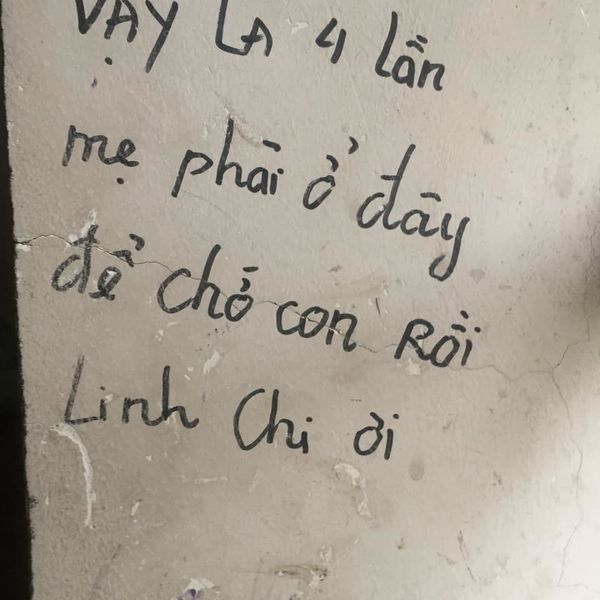 VẬY LÀ 4 lần
mẹ phải ở đây
để chờ con RỒi
Linh Chi ơi